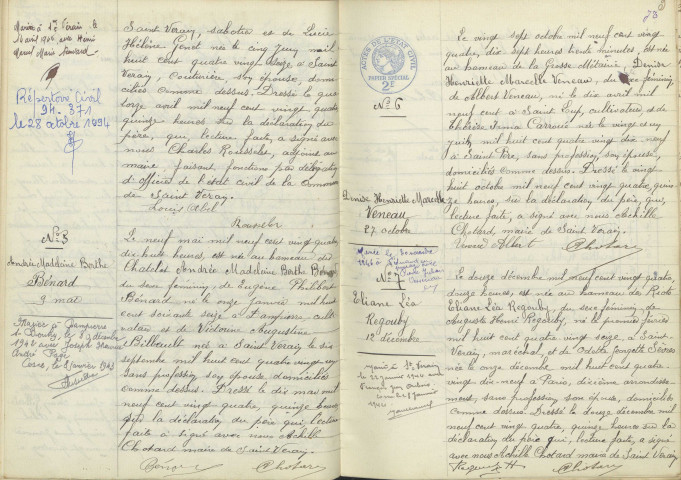 Mariée à St Verain le
16 avril 19 avec Henri
Marcel Marie
Répertoire Civil
94. 371
le 28 octobre 1994
Saint Verain, sabotier et de Lucie
Hélène Genet née le cinq juin mil
huit cent quatre vingt seize à Saint
Verain, couturière, son épouse, domi
ciliés comme dessus. Dressé le qua
torze avril mil neuf cent vingt quatre
quinze heures sur la déclaration du
père, qui, lecture faite, a signé avec
nous Charles Rousselot, adjoint au
maire faisant fonctions par délégation
d'Officier de l'état civil de la Commune
de Saint Verain.
Louis Abel
Rousselot
No 3
Andrée Madeleine Berthe
Bénard
9 mai
Mariée à Dampierre
s/ Bouhy le 8 décembre
1942 avec Joseph
André
Cosne, le 8 janvier 1943
Le neuf mai mil neuf cent vingt quatre
dix huit heures, est née au hameau des
Chatelot Andrée Madeleine Berthe Bénard
du sexe féminin, de Eugène Philibert
Bénard né le onze janvier mil huit
cent soixante seize à Dampierre, culti
vateur et de Victorine Augustine
Billault née à Saint Verain le six
septembre mil huit cent quatre vingt un
sans profession son épouse domiciliés
comme dessus. Dressé le dix mai mil
neuf cent vingt quatre, quinze heures
sur la déclaration du père qui, lecture
faite a signé avec nous Achille
Chotard maire de Saint Verain.
Bénard Chotard
78
ACTES DE L'ETAT CIVIL
PAPIER SPECIAL
2F
No 6
Denise Henriette Marcelle
Veneau
27 octobre
Le vingt sept octobre mil neuf cent vingt
quatre, dix sept heures trente minutes, est née
au hameau de la Fosse Militaire, Denise
Henriette Marcelle Veneau, du sexe féminin
de Albert Veneau, né le dix avril mil
neuf cent à Saint Loup, cultivateur et de
Thérèse Carroué née le vingt et un
juin mil huit cent quatre vingt dix neuf
à Saint Père, sans profession, son épouse,
domiciliés comme dessus. Dressé le vingt
huit octobre mil neuf cent vingt quatre, quin
ze heures, sur la déclaration du père, qui,
lecture faite, a signé avec nous Achille
Chotard, maire de Saint Verain.
Veneau Albert Chotard
Mariée le novembre
1946 à
avec
No 7
Eliane Léa
Regouby
12 décembre
Mariée à St Verain
le 22 janvier 1944 avec
1944
Le douze décembre mil neuf cent vingt quatre,
douze heures, est née au hameau des
Eliane Léa Regouby, du sexe féminin, de
Auguste Henri Regouby, né le premier février
mil huit cent quatre vingt seize à Saint
Verain, maréchal, et de Odette Georgette
née le onze décembre mil huit cent quatre-
vingt-dix-neuf à Paris, dixième arrondisse-
ment, sans profession, son épouse, domiciliés
comme dessus. Dressé le douze décembre mil
neuf cent vingt quatre, quinze heures sur la
déclaration du père qui, lecture faite, a signé
avec nous Achille Chotard maire de Saint Verain
Regouby H Chotard